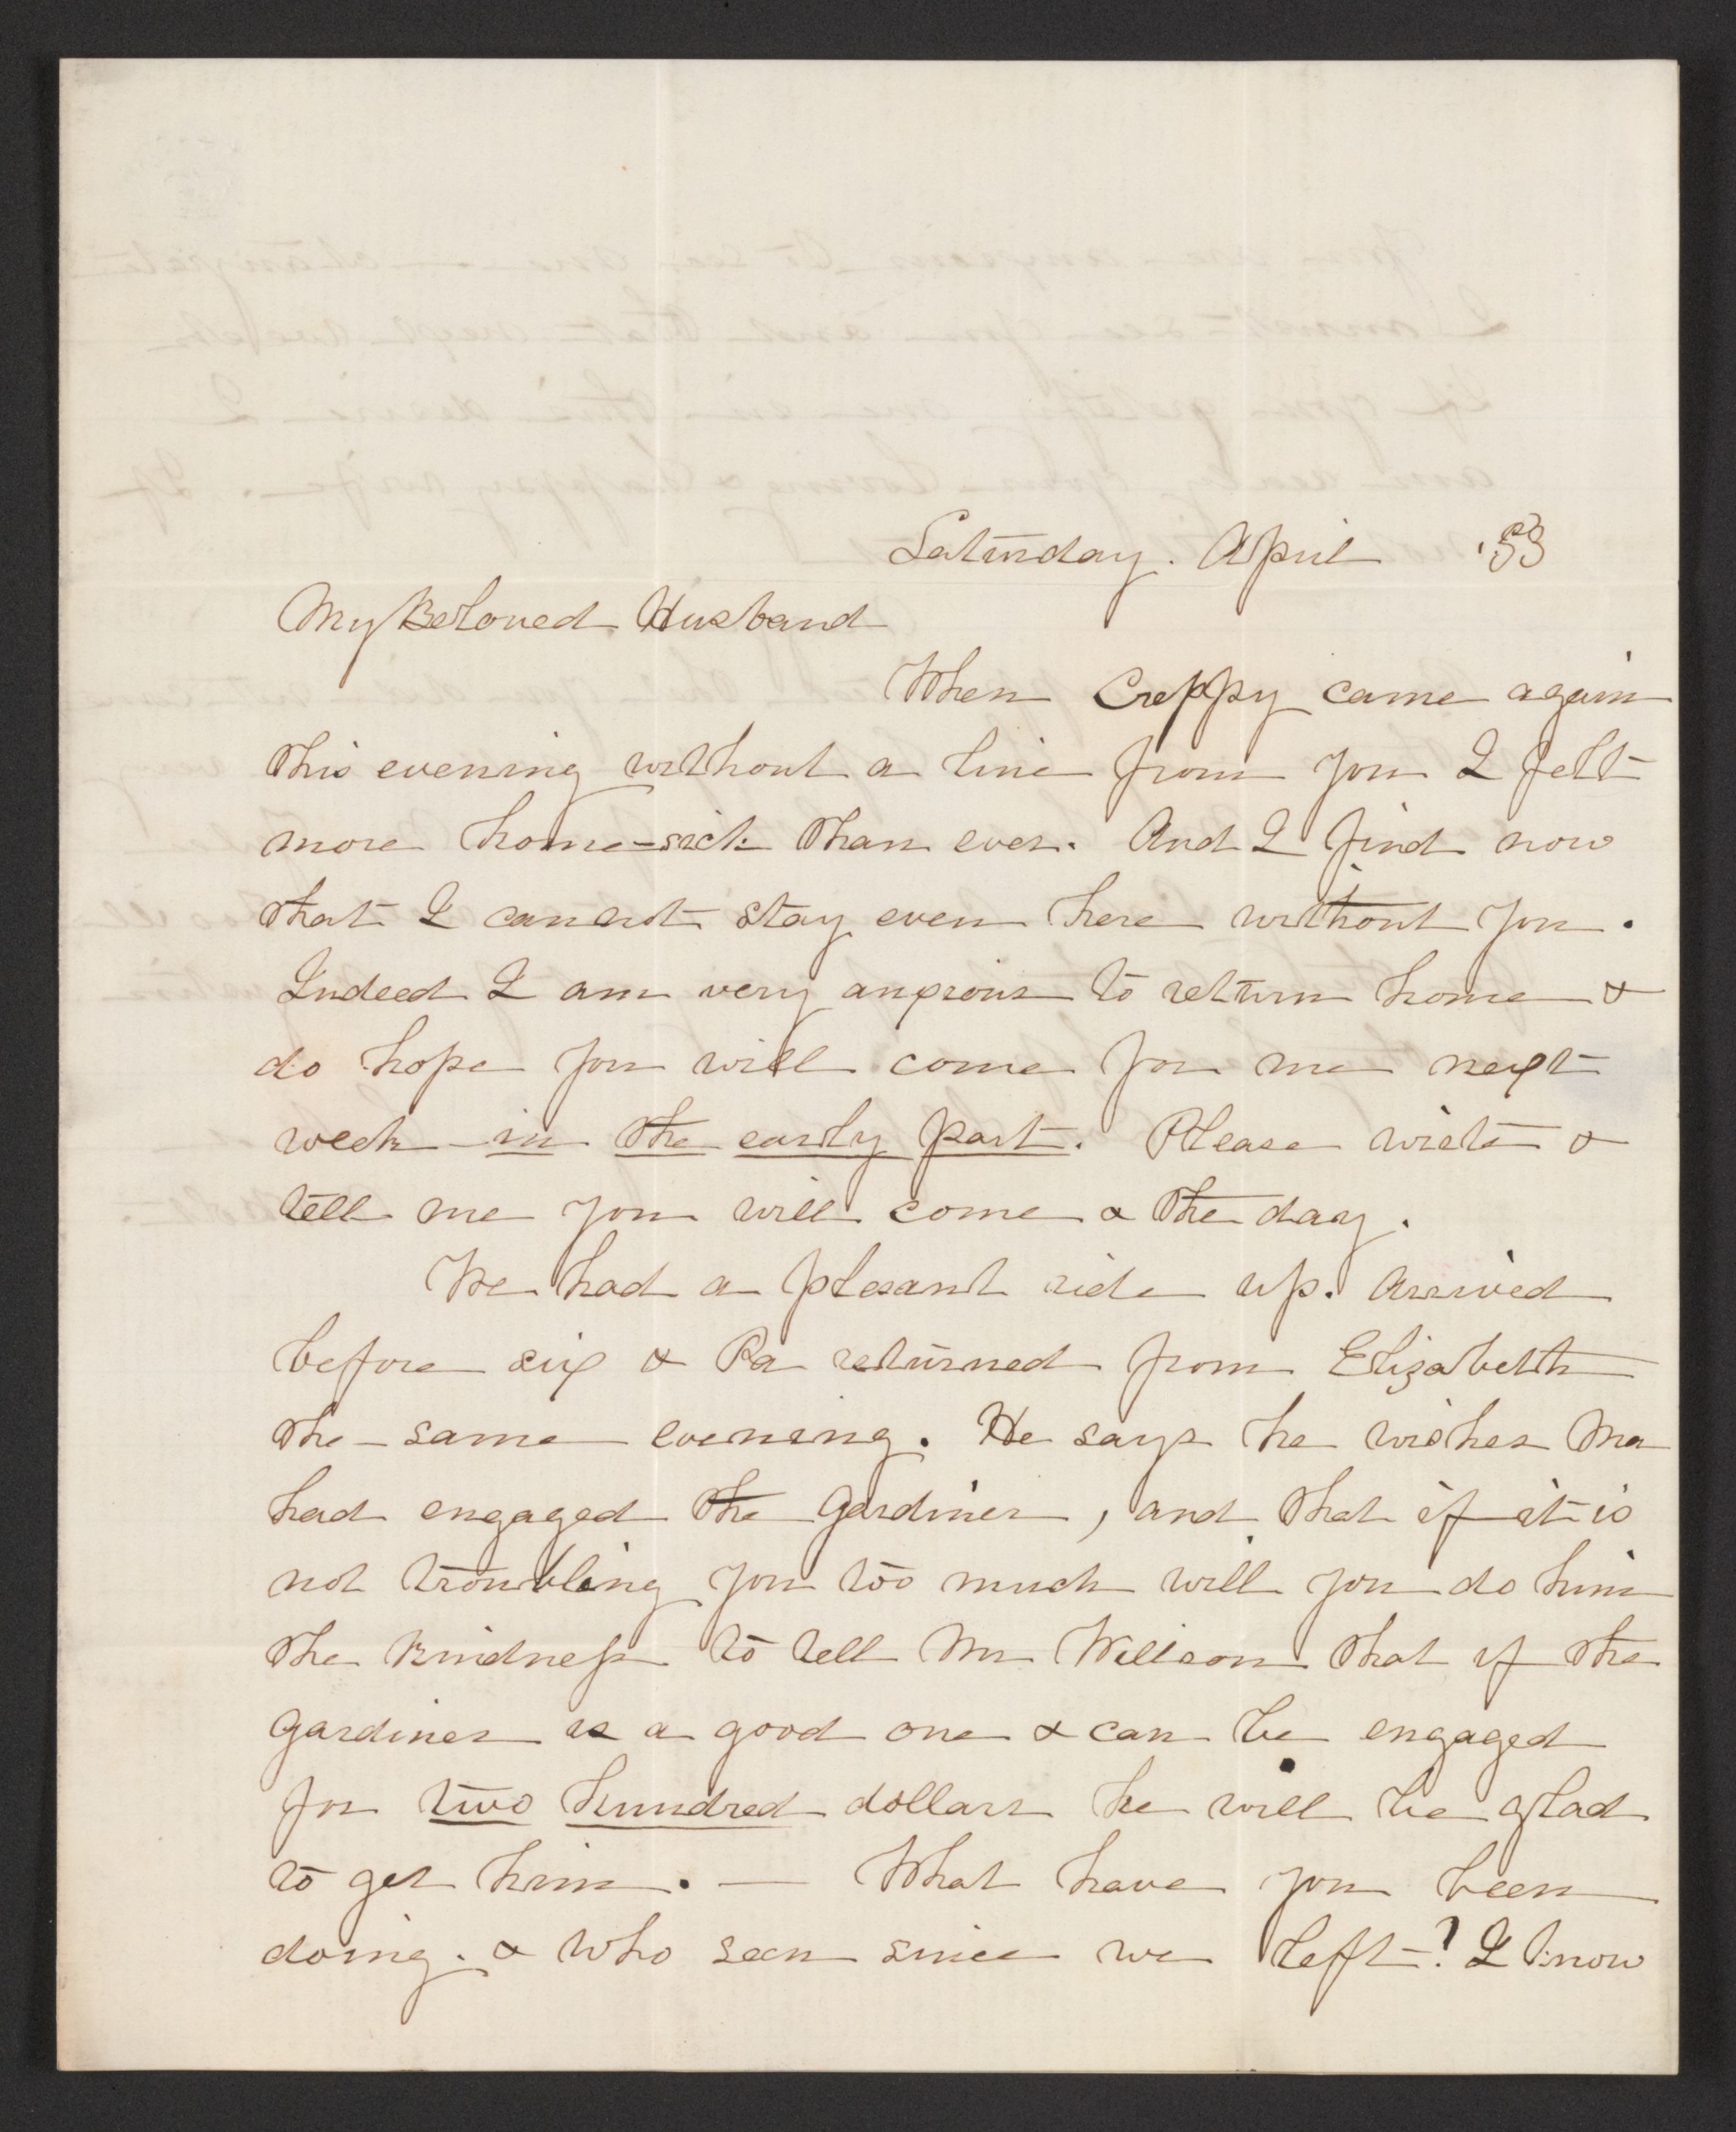 Saturday. April '53
My Beloved Husband
When Creppy came again
this evening without a line from you I felt
more home-sick than ever. And I find now
that I cannot stay even here without you.
Indeed I am very anxious to return home &
do hope you will come for me next
week in the early part. Please write &
tell me you will come & the day.
We had a plesant ride up. Arrived
before six & Pa returned from Elizabeth
the same evening. He says he wishes Ma
had engaged the Gardiner, and that if it is
not troubling you too much will you do him
the kindness to tell Mr Willson that if the
Gardiner is a good one & can be engaged
for two hundred dollars he will be glad
to get him. — What have you been
doing. & who seen since we left? I know